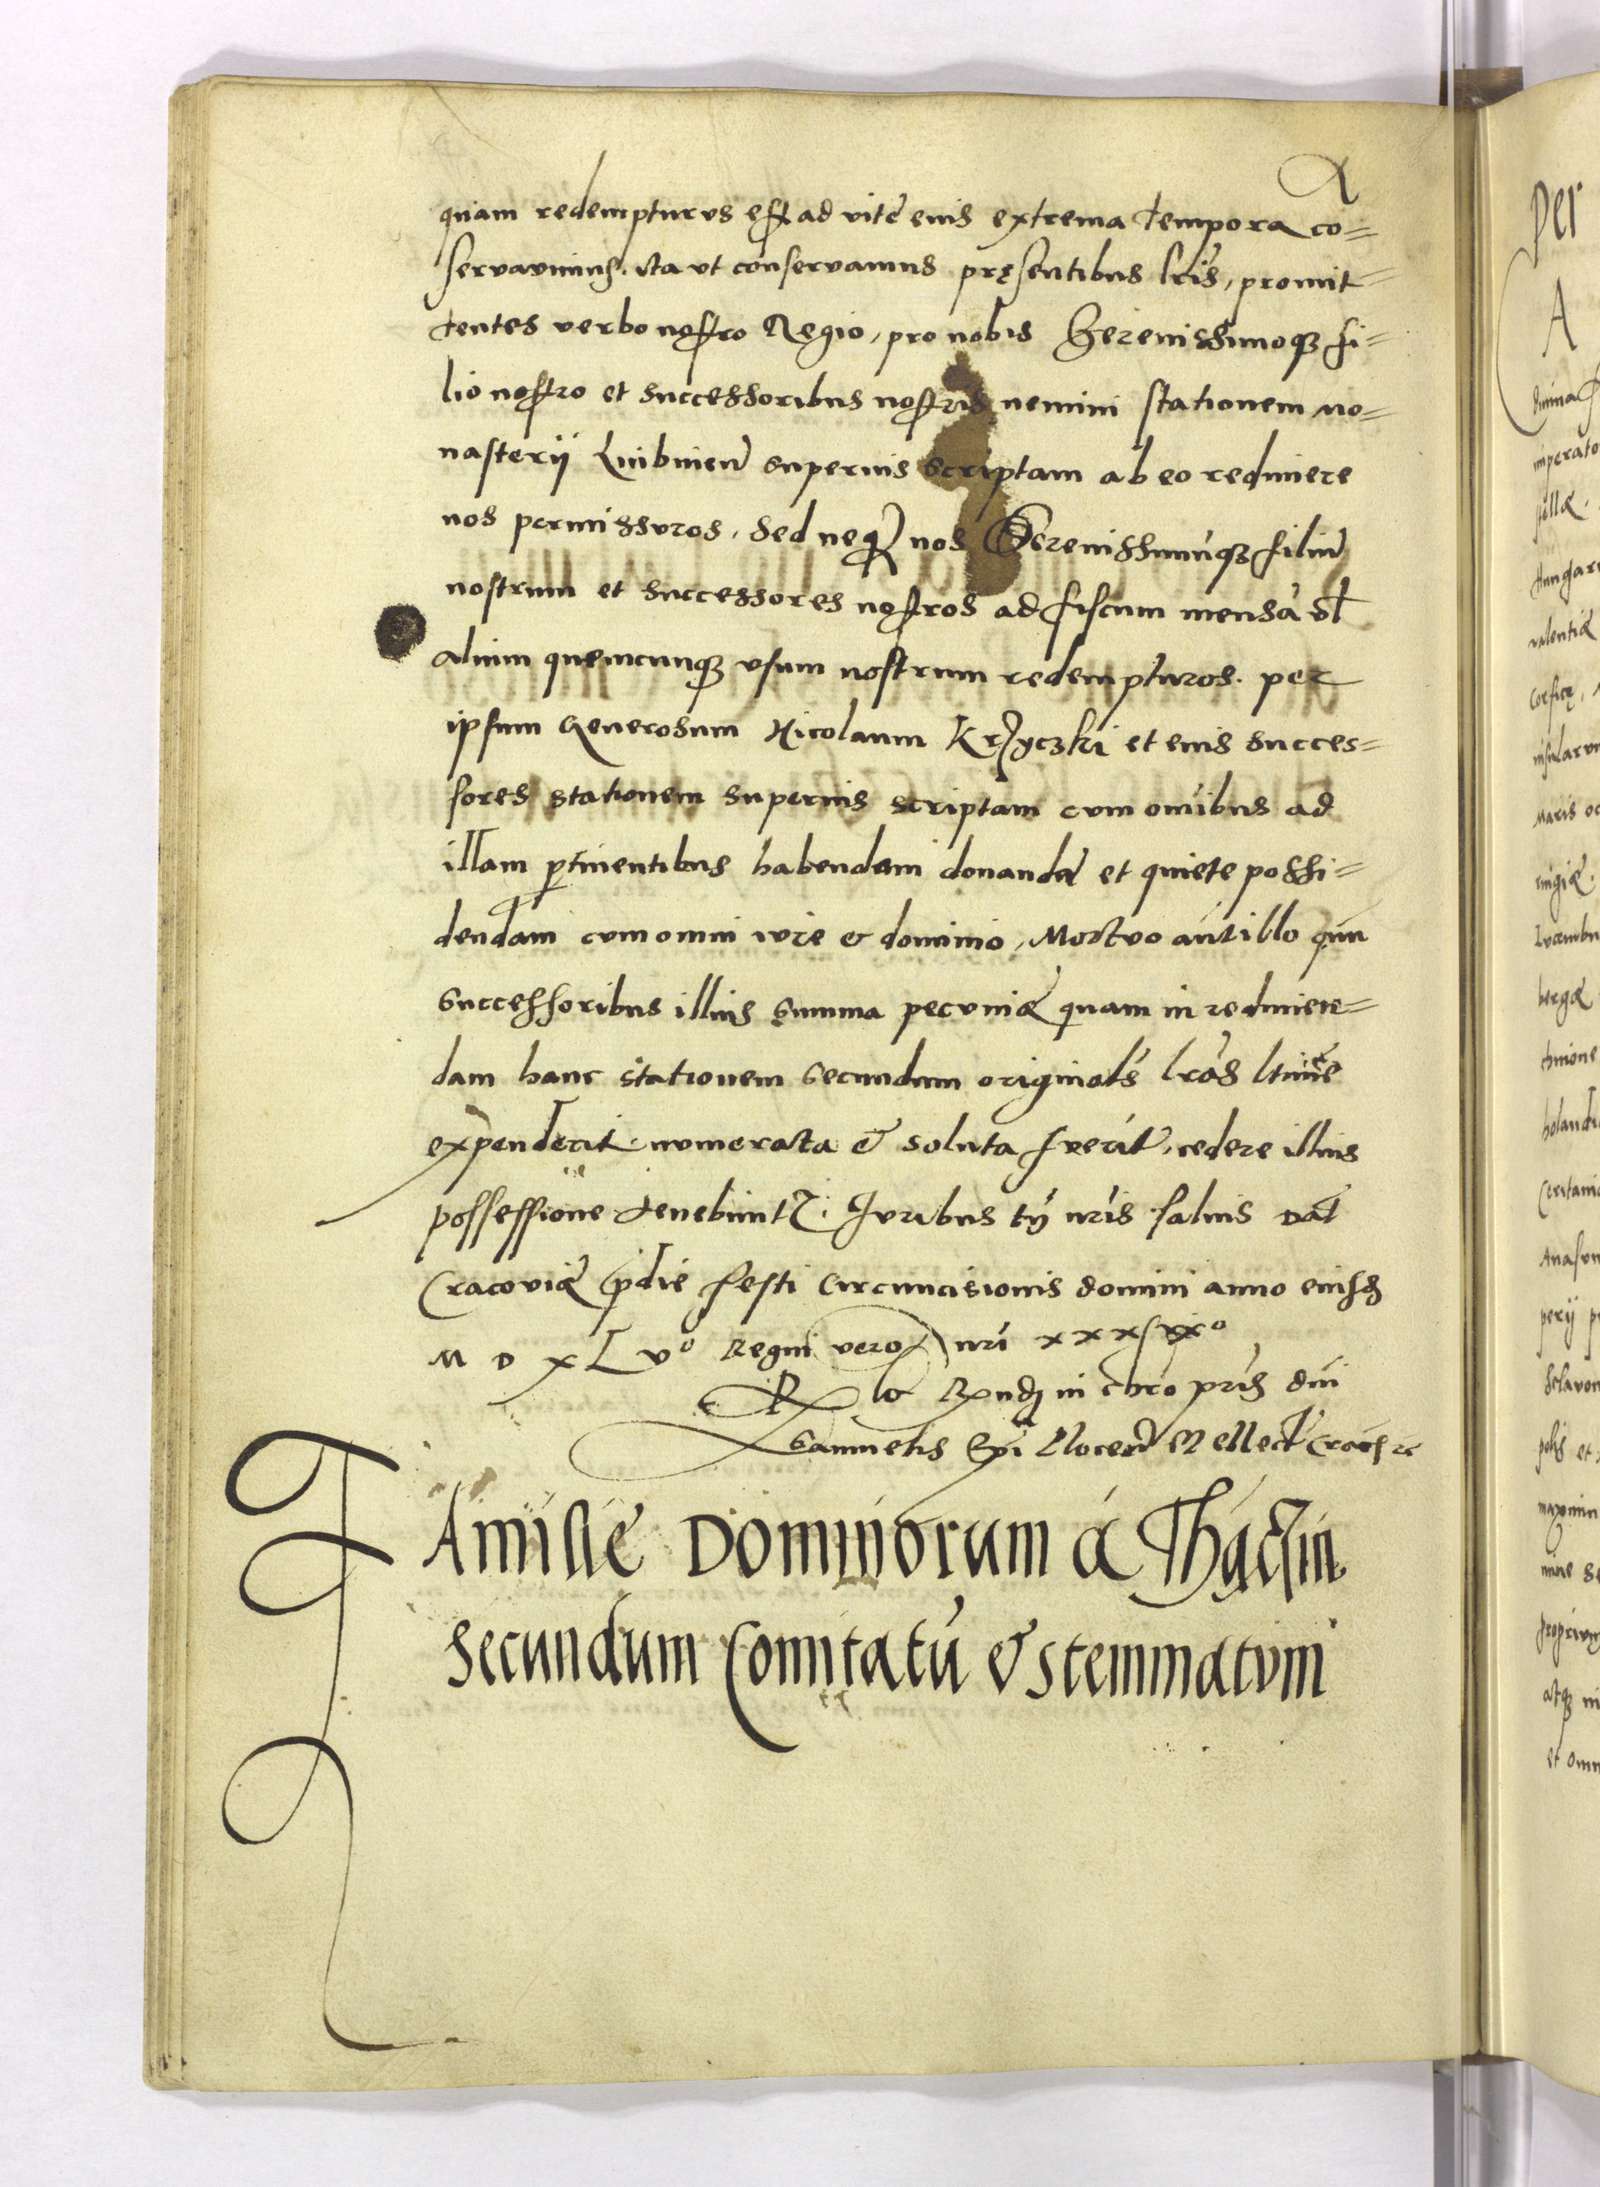 quam redempturus est ad vitē euis extrema tempora cō=
servavimus. ita vt conservamus pręsentibus lr̄is, promit=
tentes verbo nostro Regio, pro nobis Serenissimoqȝ fi=
lio nostro et successoribus nostris nemini stationem mo=
nasterij Lubinen̄ superius scriptam ab eo redimere
nos permissuros. Sed neqȝ nos Serenissimūqȝ filiū
nostrum et successores nostros ad fiscum mensā vl̄
alium quemcunqȝ vsum nostrum redempturos. per
ipsum Generosum Nicolaum Krzyczki et euis succes=
sores stationem superius scriptam cum omībus ad
illam ptinentibus habendam donandā et quiete possi=
dendam cum omni iure & dominio, Mortuo aūt illo qūm
successoribus illius summa pecuniæ quam in redimen=
dam hanc stationem secundum originales lr̄as ltime
expenderit. numerata & soluta fuerit. cedere illius
possessione tenebuntr. Iuribus tn̄ nr̄is saluis Dat̄
Cracoviæ p̄die festi Circuncisionis domini anno euisdȝ
M D XL vº Regni vero nr̄i xxxixº
Rlo Rn̄dȝ in chr̄o pr̄is dn̄i
Samuelis Ep̄i Plocen̄ et electi Crac̄
Familiē Dominorum á Thāczin
secundum Comitatū & stemmatum
per
A
imperato
Hungari
valentiæ
Corsicę,
insularum
Maris oc
bergæ
perij p
polis et
atqȝ in
et omn